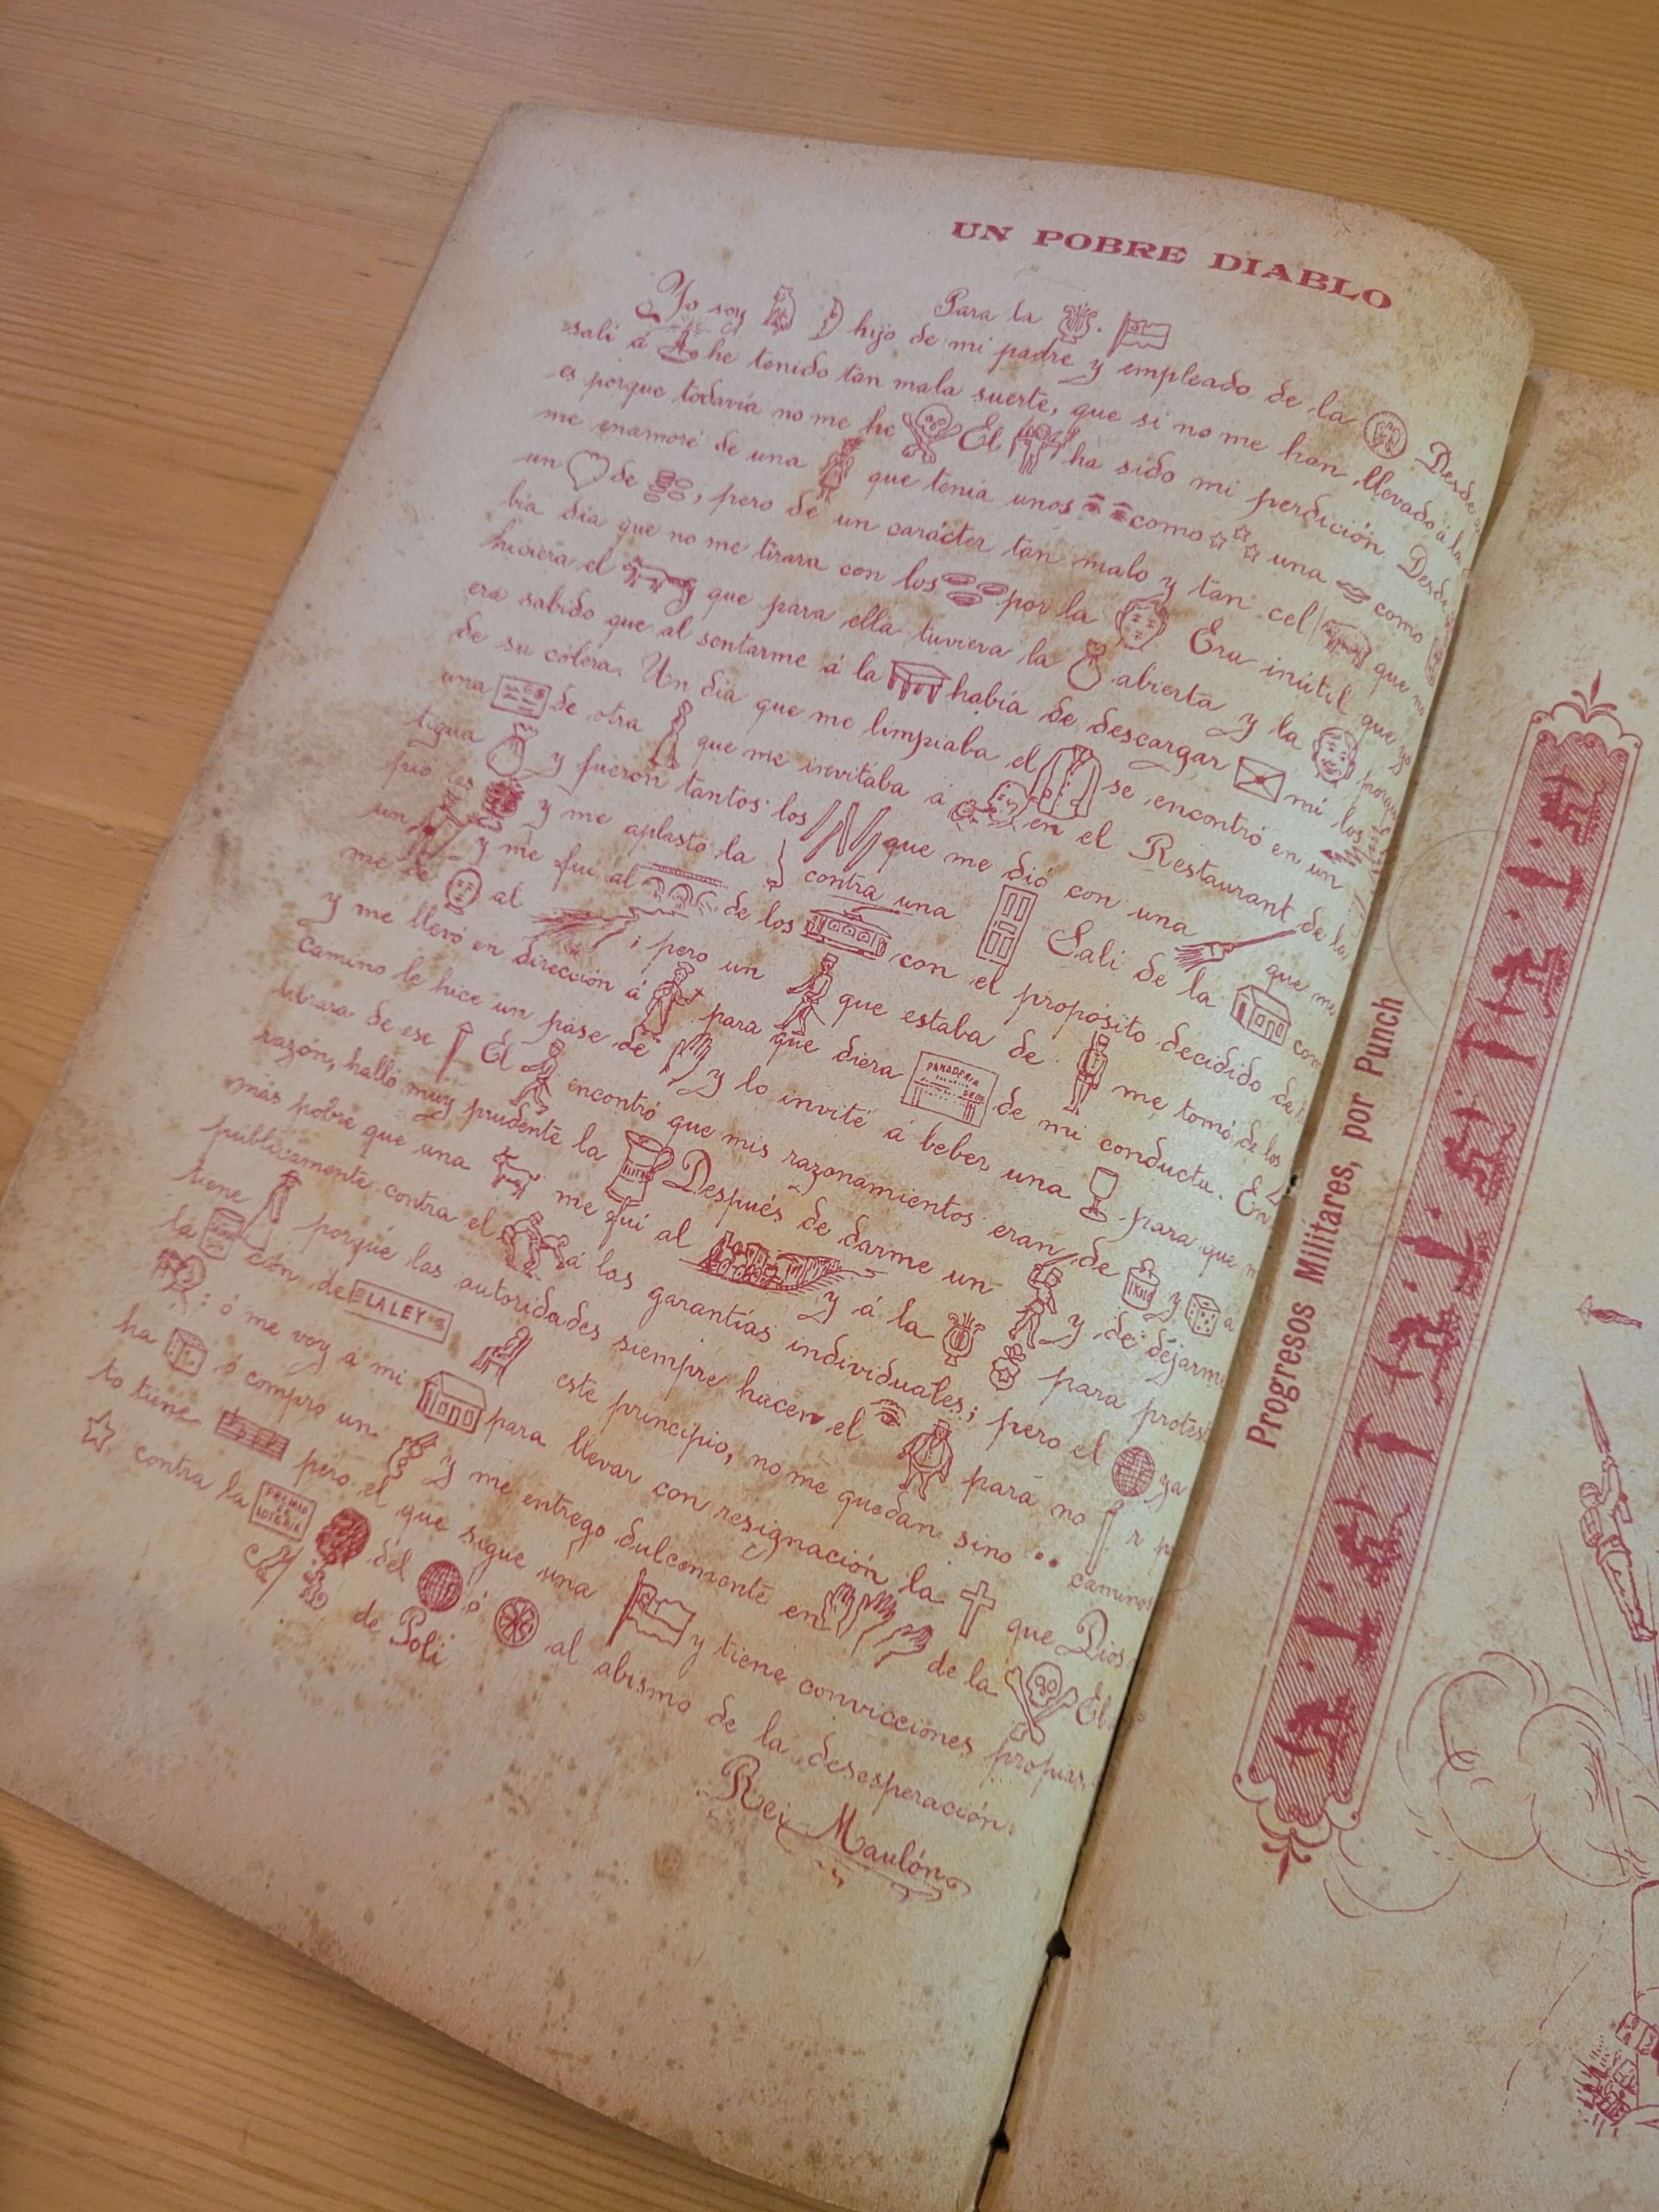 UN POBRE DIABLO
Para la
Yo soy hijo de mi padre y empleado de la Desde
salí á he tenido tan mala suerte, que si no me han llevado á la
es porque todavía no me he El ha sido mi perdición. Desde
me enamoré de una que tenía unos como una como
un de ; pero de un carácter tan malo y tan cel que no
bía día que no me tirara con los por la Era inútil que yo
hiciera el y que para ella tuviera la abierta y la porque
era sabido que al sentarme á la había de descargar mí los
de su cólera. Un día que me limpiaba el se encontró en un
una de otra que me invitaba á en el Restaurant de la
tigua y fueron tantos los que me dió con una que me
y me aplastó la contra una Salí de la con
un y me fui al de los con el propósito decidido de
me de al ; pero un que estaba de me tomó de los
y me llevó en dirección á para que diera PANADERIA de mi conducta. En
camino le hice un pase de y lo invité á beber una para que
librara de ese El encontró que mis razonamientos eran de y
razón, halló muy prudente la Después de darme un y de dejarme
más pobre que una me fuí al y á la para protes
públicamente contra el á las garantías individuales; pero el ya
tiene porque las autoridades siempre hacen el para no r
la ción de LA LEY este principio, no me quedan sino •• caminos
: ó me voy á mi para llevar con resignación la que Dios
ha ó compro un y me entrego dulcemente en de la El
to tiene pero el que sigue una y tiene convicciones propias
contra la PREMIO LOTERIA del ó al abismo de la desesperación.
de Poli
Rei Maulón
Progresos Militares, por Punch